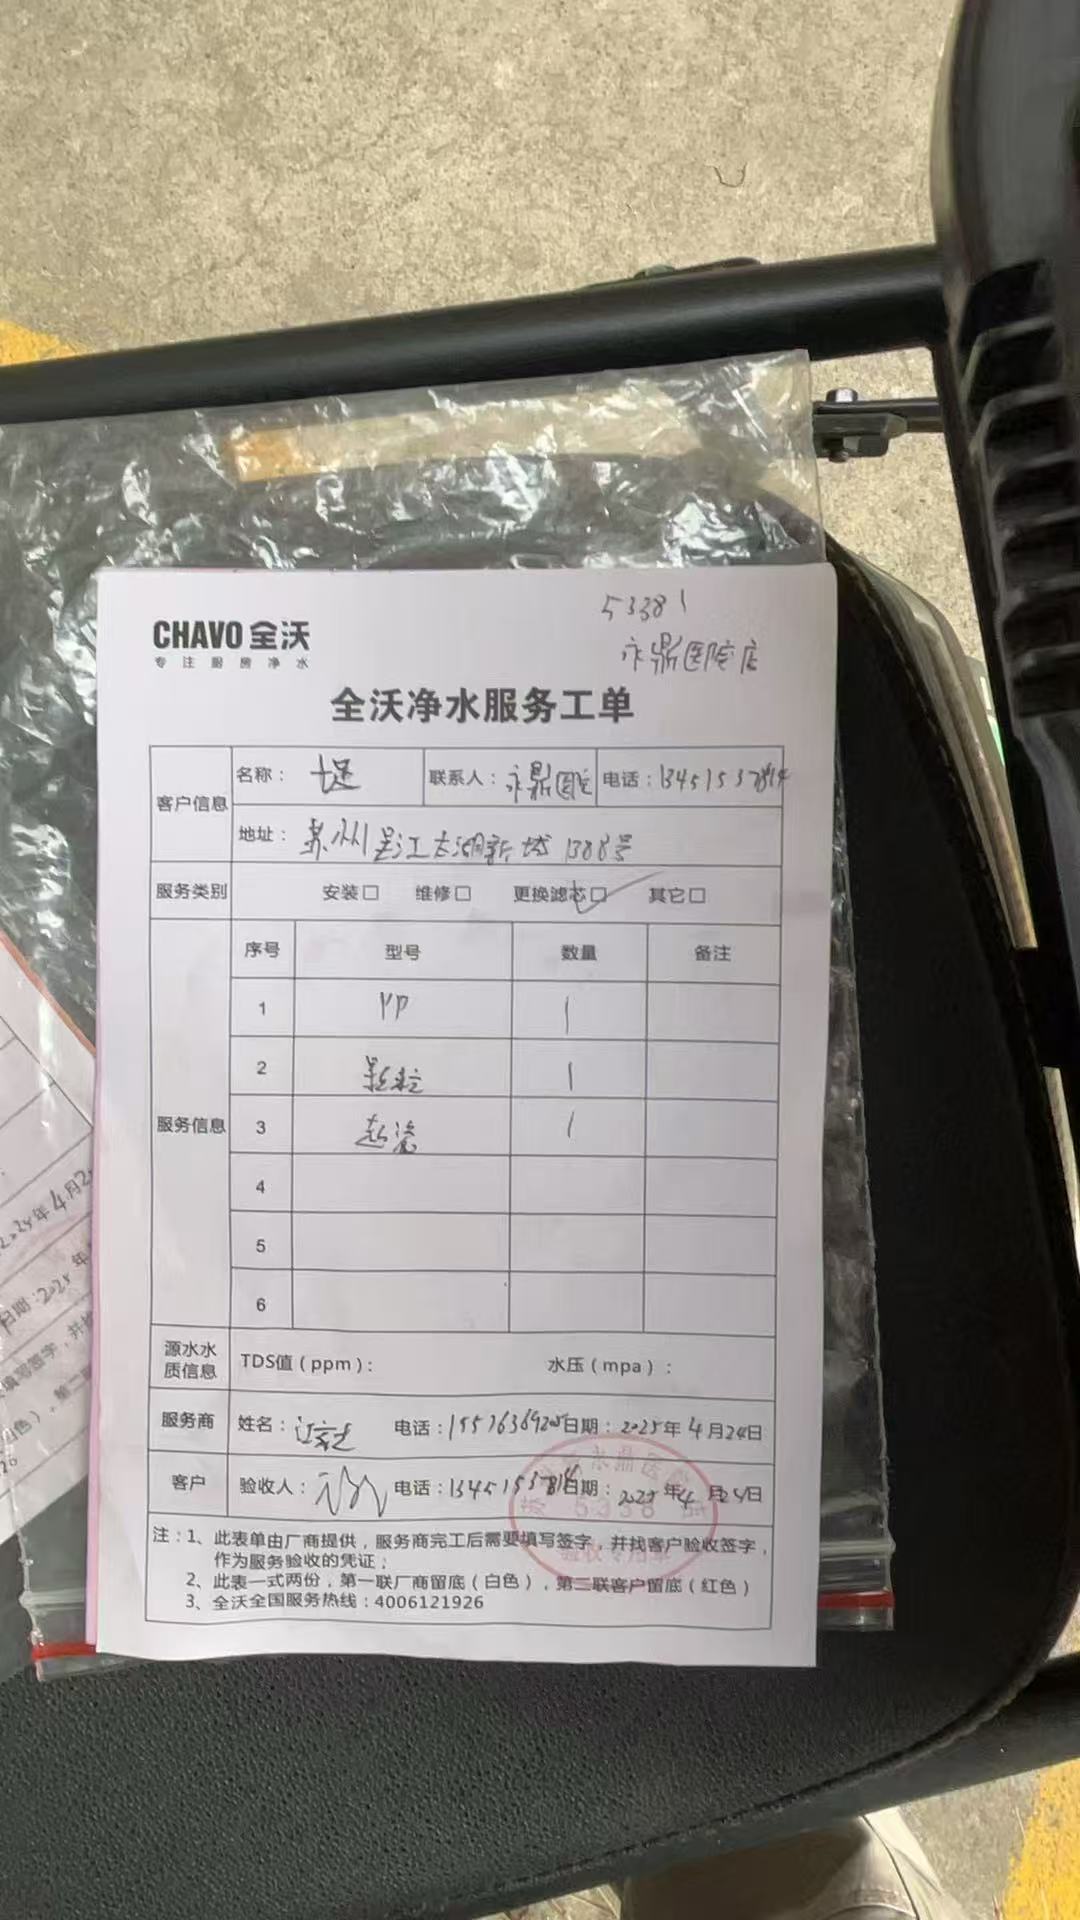 53381
永鼎医院店
CHAVO 全沃
专注厨房净水
全沃净水服务工单
客户信息
名称：
联系人：永鼎医院
电话：13451537814
地址：苏州吴江太湖新城1388号
服务类别
安装□ 维修□ 更换滤芯□ 其它□
服务信息
序号 型号 数量 备注
1 PP 1
2 颗粒 1
3 超滤 1
4
5
6
源水水质信息
TDS值（ppm）： 水压（mpa）：
服务商
姓名： 电话： 日期：2025年4月24日
客户
验收人： 电话：13451537814 日期：2025年4月24日
永鼎医
5338
验收专用章
注：1、此表单由厂商提供，服务商完工后需要填写签字，并找客户验收签字，
作为服务验收的凭证；
2、此表一式两份，第一联厂商留底（白色），第二联客户留底（红色）
3、全沃全国服务热线：4006121926
2025年4月2
日期：2025年
填写签字，并